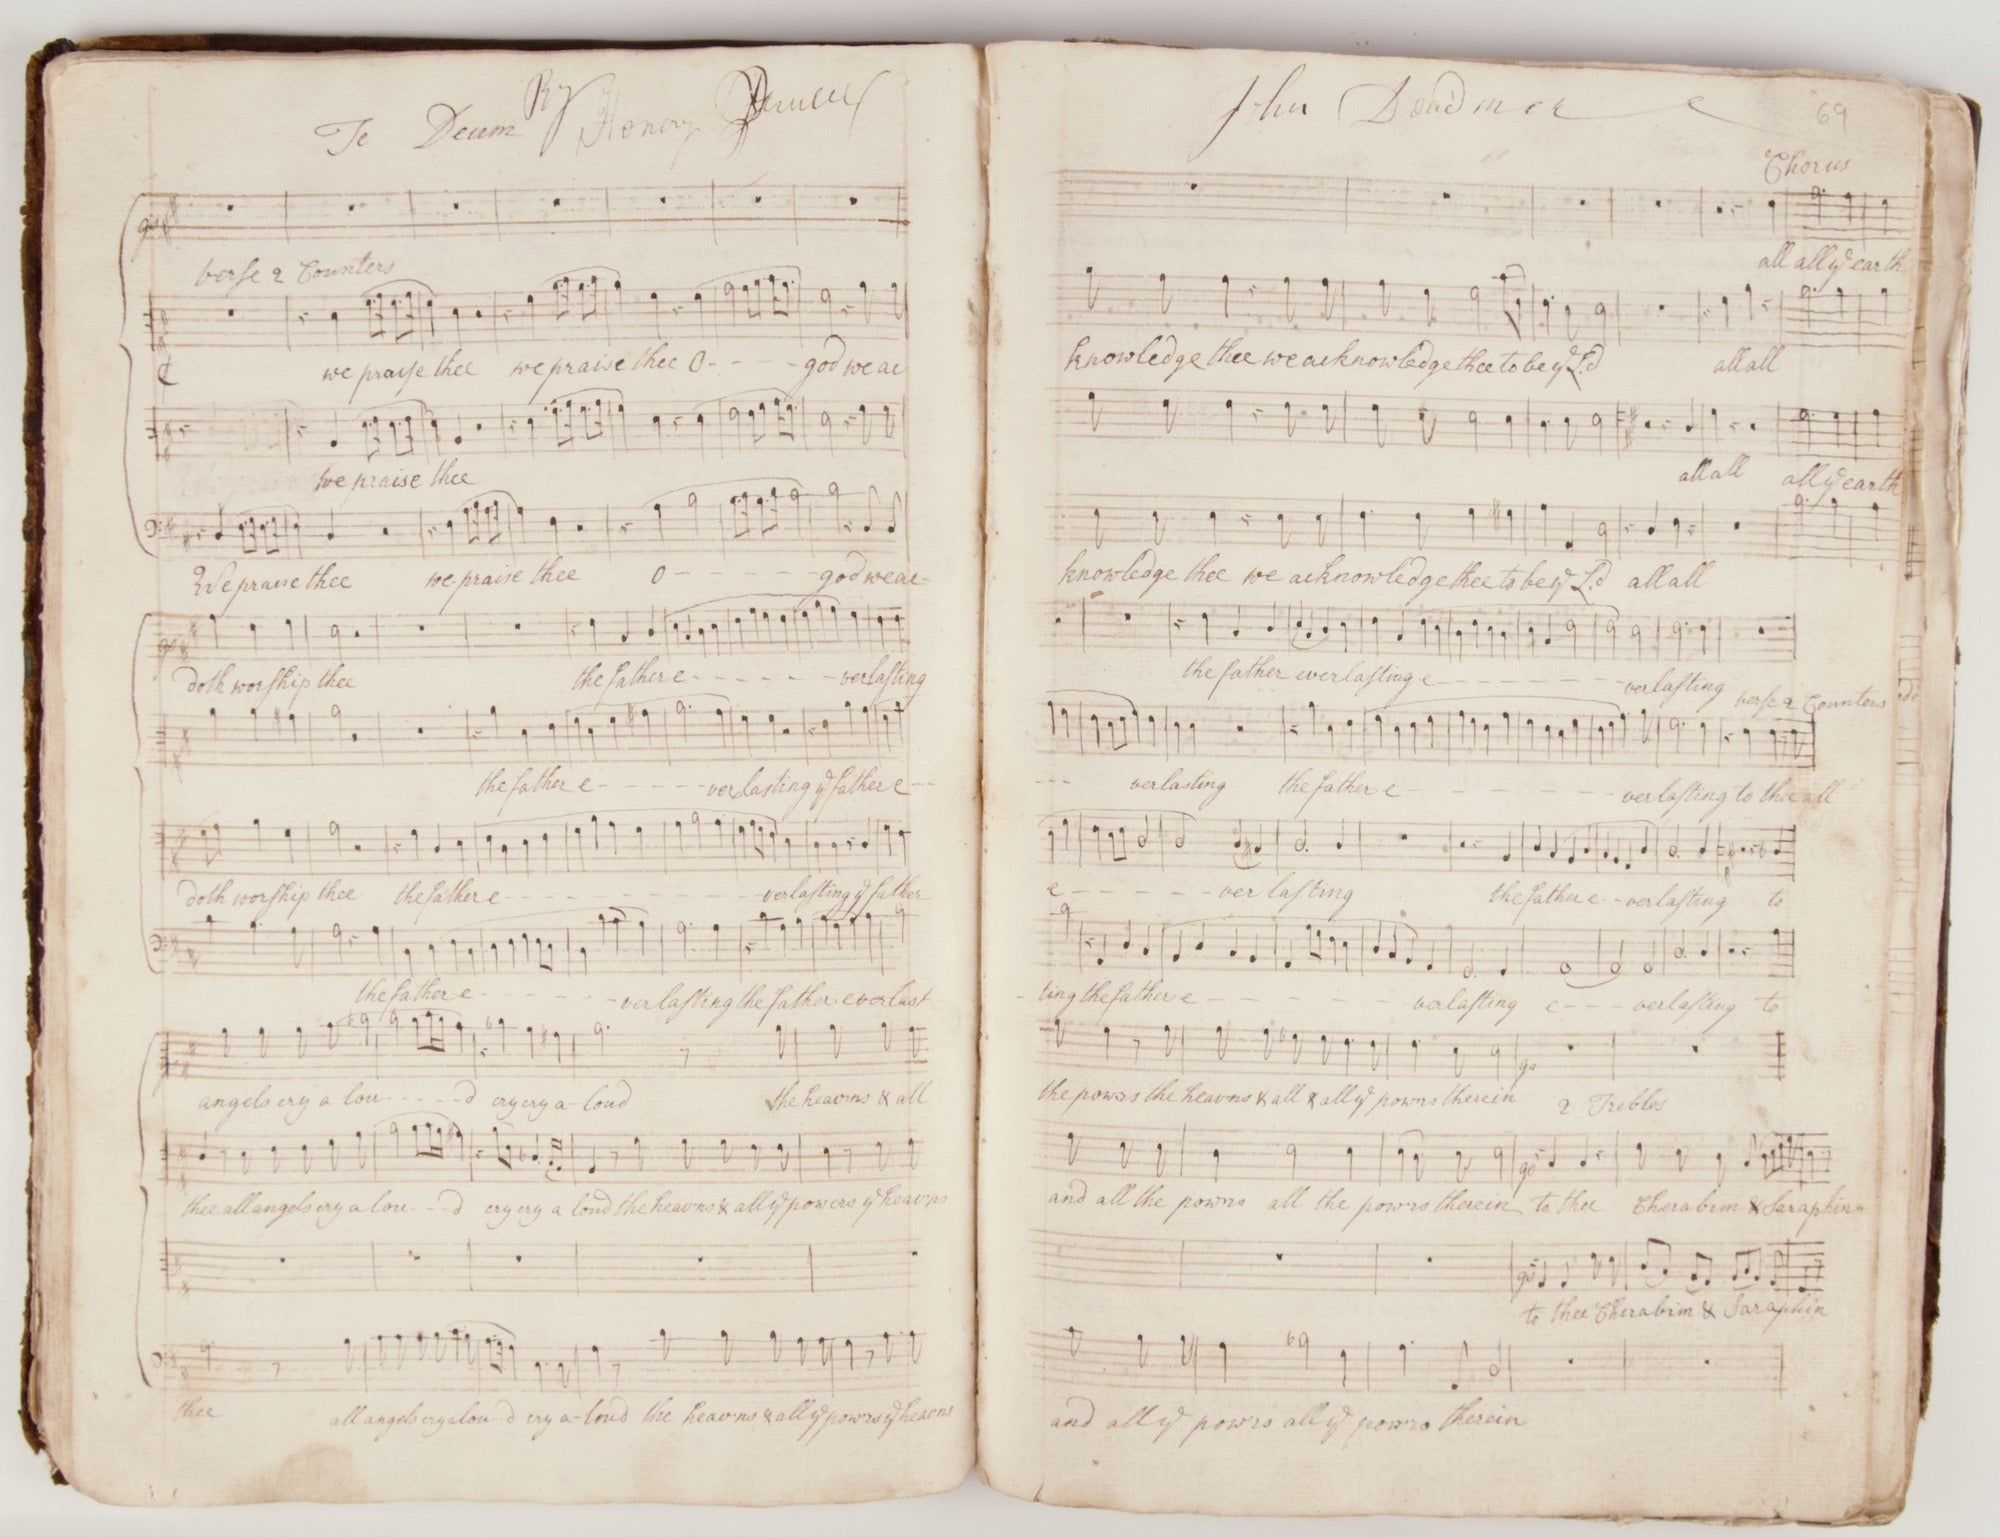 Te Deum By Henery
verse 2 Counters
we prayse thee we praise thee O - - - - god we ac
we praise thee
We praise thee we praise thee O - - - - - - god we ac-
doth worship thee the father e - - - - - - verlasting
the father e - - - - - verlasting yᵉ father e - -
doth worship thee the father e - - - - - - - - verlasting yᵉ father
the father e - - - - - - verlasting the father everlast
angels cry a lou - - - - - d cry cry a-loud the heavns & all
thee all angels cry a lou - - - d cry cry a loud the heavns & all yᵉ powers yᵉ heavns
thee all angels cry a lou - d cry a-loud the heavns & all yᵉ powrs yᵉ heavns
John Deadmer
69
Chorus
all all yᵉ earth
knowledge thee we acknowledge thee to be yᵉ L:d all all
all all all yᵉ earth
knowledge thee we acknowledge thee to be yᵉ L:d all all
the father everlasting e - - - - - - - - verlasting
verse 2 Counters
- - - verlasting the father e - - - - - - - - verlasting to thee all
e - - - - - - ver lasting the father e - verlasting to
- ting the father e - - - - - - - verlasting e - - - verlasting to
the powrs the heavns & all & all yᵉ powrs therein 2 Trebles
and all the powrs all the powrs therein to thee Cherabim & Saraphin
to thee Cherabim & Saraphin
and all yᵉ powrs all yᵉ powrs therein